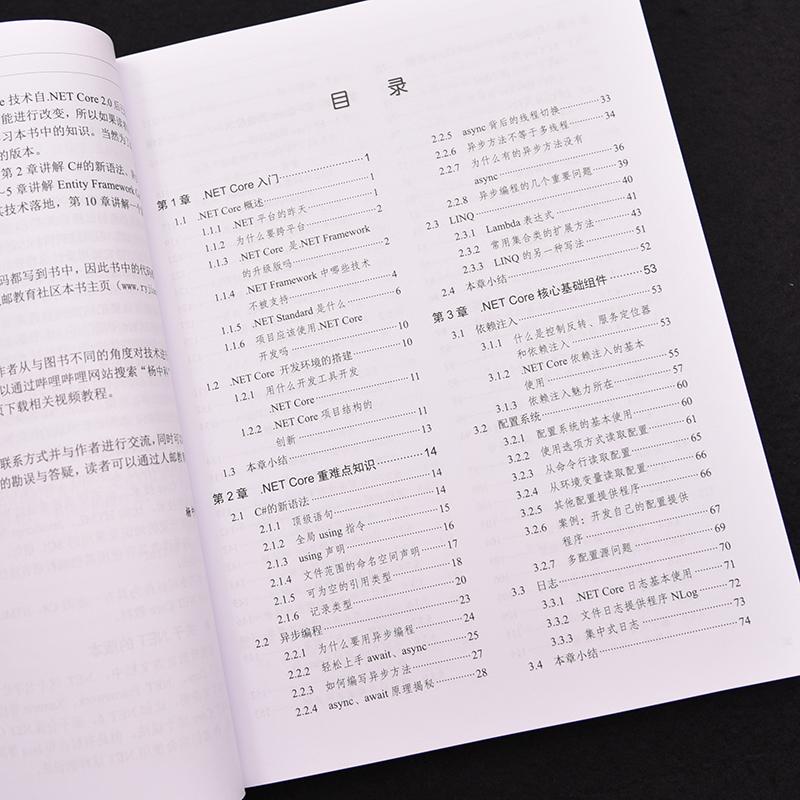 e 技术自.NET Core 2.0 后
能进行改变，所以如果读
习本书中的知识。当然为了
的版本。
第 2 章讲解 C#的新语法、
~5 章讲解 Entity Framework C
其技术落地，第 10 章讲解一个
码都写到书中，因此书中的代码
邮教育社区本书主页（www.ryji
作者从与图书不同的角度对技术进
以通过哔哩哔哩网站搜索“杨中科”
页下载相关视频教程。
联系方式并与作者进行交流，同时可
的勘误与答疑，读者可以通过人邮教
目 录
第 1 章 .NET Core 入门 1
1.1 .NET Core 概述 1
1.1.1 .NET 平台的昨天 1
1.1.2 为什么要跨平台 2
1.1.3 .NET Core 是.NET Framework
的升级版吗 2
1.1.4 .NET Framework 中哪些技术
不被支持 4
1.1.5 .NET Standard 是什么 6
1.1.6 项目应该使用.NET Core
开发吗 10
1.2 .NET Core 开发环境的搭建 10
1.2.1 用什么开发工具开发
.NET Core 10
1.2.2 .NET Core 项目结构的
创新 11
1.3 本章小结 13
第 2 章 .NET Core 重难点知识 14
2.1 C#的新语法 14
2.1.1 顶级语句 14
2.1.2 全局 using 指令 15
2.1.3 using 声明 16
2.1.4 文件范围的命名空间声明 17
2.1.5 可为空的引用类型 18
2.1.6 记录类型 20
2.2 异步编程 23
2.2.1 为什么要用异步编程 24
2.2.2 轻松上手 await、async 25
2.2.3 如何编写异步方法 27
2.2.4 async、await 原理揭秘 28
2.2.5 async 背后的线程切换 33
2.2.6 异步方法不等于多线程 34
2.2.7 为什么有的异步方法没有
async 36
2.2.8 异步编程的几个重要问题 39
2.3 LINQ 40
2.3.1 Lambda 表达式 41
2.3.2 常用集合类的扩展方法 43
2.3.3 LINQ 的另一种写法 51
2.4 本章小结 52
第 3 章 .NET Core 核心基础组件 53
3.1 依赖注入 53
3.1.1 什么是控制反转、服务定位器
和依赖注入 53
3.1.2 .NET Core 依赖注入的基本
使用 55
3.1.3 依赖注入魅力所在 57
3.2 配置系统 60
3.2.1 配置系统的基本使用 60
3.2.2 使用选项方式读取配置 62
3.2.3 从命令行读取配置 64
3.2.4 从环境变量读取配置 65
3.2.5 其他配置提供程序 66
3.2.6 案例：开发自己的配置提供
程序 67
3.2.7 多配置源问题 69
3.3 日志 70
3.3.1 .NET Core 日志基本使用 71
3.3.2 文件日志提供程序 NLog 72
3.3.3 集中式日志 73
3.4 本章小结 74